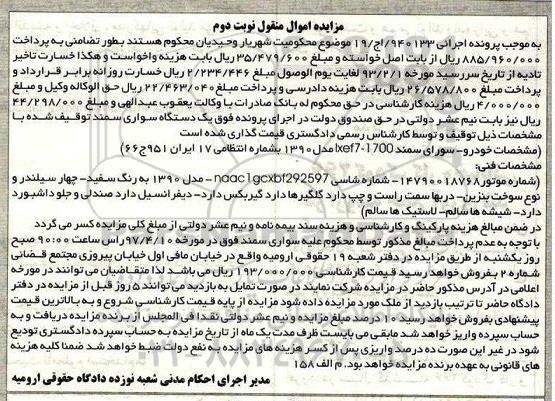 مزایده اموال منقول نوبت دوم
به موجب پرونده اجرائی ۹۴۰۱۳۳/اج/۱۹ موضوع محکومیت شهریار وحیدیان محکوم هستند بطور تضامنی به پرداخت
۸۸۵/۹۶۰/۰۰۰ ریال از بابت اصل خواسته و مبلغ ۳۵/۴۷۹/۶۰۰ ریال بابت هزینه واخواست و هکذا خسارت تاخیر
تادیه از تاریخ سررسید مورخه ۹۳/۲/۱ لغایت یوم الوصول مبلغ ۲/۲۳۴/۴۴۶ ریال خسارت روزانه برابر قرارداد و
پرداخت مبلغ ۲۶/۵۷۸/۸۰۰ ریال بابت هزینه دادرسی و پرداخت مبلغ ۲۲/۴۶۳/۰۴۰ ریال حق الوکاله وکیل و مبلغ
۴/۰۰۰/۰۰۰ ریال هزینه کارشناسی در حق محکوم له بانک صادرات با وکالت یعقوب عبدالهی و مبلغ ۴۴/۲۹۸/۰۰۰
ریال نیز بابت نیم عشر دولتی در حق صندوق دولت در اجرای پرونده فوق یک دستگاه سواری سمند توقیف شده با
مشخصات ذیل توقیف و توسط کارشناس رسمی دادگستری قیمت گذاری شده است
(مشخصات خودرو-سواری سمند lxef7-1700 مدل ۱۳۹۰ بشماره انتظامی ۱۷ ایران ۹۵۱ج۶۶)
مشخصات فنی:
(شماره موتور ۱۴۷۹۰۰۱۸۷۶۸- شماره شاسی naac1gcxbf292597 - مدل ۱۳۹۰ به رنگ سفید- چهار سیلندر و
نوع سوخت بنزین- دربها سمت راست و چپ دارد گلگیرها دارد گیربکس دارد- دیفرانسیل دارد صندلی و جلو داشبورد
دارد- شیشه ها سالم- لاستیک ها سالم)
در ضمن مبالغ هزینه پارکینگ و کارشناسی و هزینه سند بیمه نامه و نیم عشر دولتی از مبلغ کلی مزایده کسر می گردد
با توجه به عدم پرداخت مبالغ مذکور توسط محکوم علیه سواری سمند فوق در مورخه ۹۷/۴/۱۰ راس ساعت ۹:۰۰ صبح
روز یکشنبه از طریق مزایده در دفتر شعبه ۱۹ حقوقی ارومیه واقع در خیابان مافی اول خیابان پیروزی مجتمع قضائی
شماره ۲ بفروش خواهد رسید قیمت کارشناسی ۱۹۳/۰۰۰/۰۰۰ ریال می باشد. لذا متقاضیان می توانند در مورخه
اعلامی در آدرس مذکور حاضر در مزایده شرکت نمایند در صورت تمایل به بازدید می توانند ۵ روز قبل از مزایده در دفتر
دادگاه حاضر تا ترتیب بازدید از ملک مورد مزایده داده شود مزایده از پایه قیمت کارشناسی شروع و به بالاترین قیمت
پیشنهادی بفروش خواهد رسید ده درصد مبلغ مزایده و نیم عشر دولتی نقدا فی المجلس از برنده مزایده دریافت و به
حساب سپرده واریز خواهد شد مابقی می بایست ظرف مدت یک ماه از تاریخ مزایده به حساب سپرده دادگستری تودیع
شود در غیر این صورت ده درصد واریزی پس از کسر هزینه های مزایده به نفع دولت ضبط خواهد شد ضمنا کلیه هزینه
های قانونی به عهده برنده مزایده خواهد بود. م الف ۱۵۸
مدیر اجرای احکام مدنی شعبه نوزده دادگاه حقوقی ارومیه